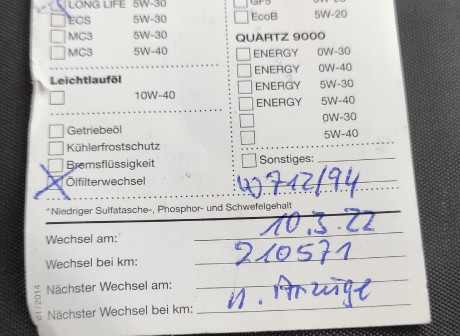 LONG LIFE 5W-30
ECS 5W-30
MC3 5W-30
MC3 5W-40
Leichtlauföl
10W-40
Getriebeöl
Kühlerfrostschutz
Bremsflüssigkeit
Ölfilterwechsel
EcoB 5W-20
QUARTZ 9000
ENERGY 0W-30
ENERGY 0W-40
ENERGY 5W-30
ENERGY 5W-40
0W-30
5W-40
Sonstiges:
W712/94
*Niedriger Sulfatasche-, Phosphor- und Schwefelgehalt
Wechsel am: 10.3.22
Wechsel bei km: 210571
Nächster Wechsel am:
Nächster Wechsel bei km: n. Anzeige
01/2014